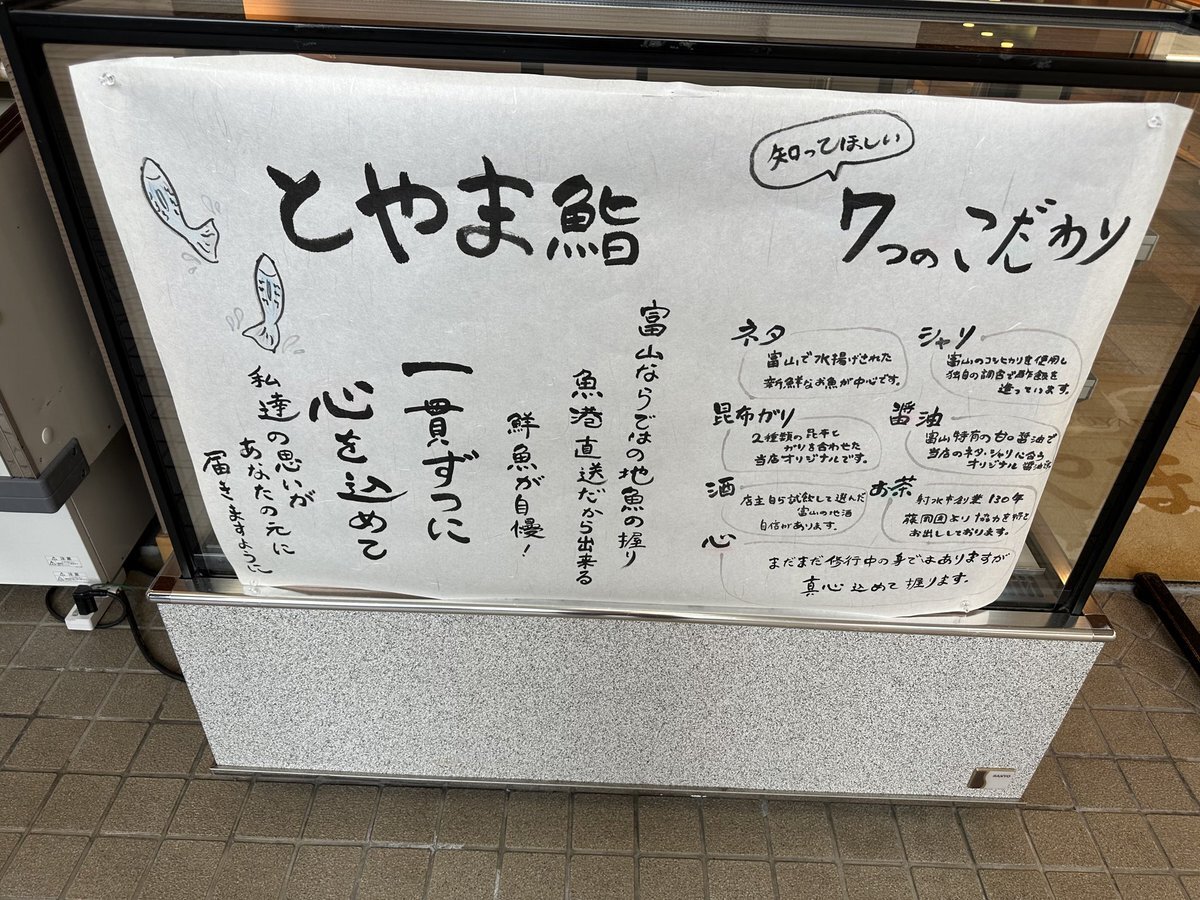 とやま鮨
知ってほしい
7つのこだわり
富山ならではの地魚の握り
魚港直送だから出来る
鮮魚が自慢!
一貫ずつに
心を込めて
私達の思いが
あなたの元に
届きますように
シャリ
富山のコシヒカリを使用し
独自の調合で酢飯を
造っています。
ネタ
富山で水揚げされた
新鮮なお魚が中心です。
醤油
富山特有の甘口醤油で
当店のネタ・シャリに合う
オリジナル醤油
昆布ガリ
2種類の昆布と
ガリを合わせた
当店オリジナルです。
お茶
射水市創業130年
より協力を得て
お出ししております。
酒
店主自ら試飲して選んだ
富山の地酒
自信があります。
心
まだまだ修行中の身ではありますが
真心込めて握ります。
注意
注意
SANYO